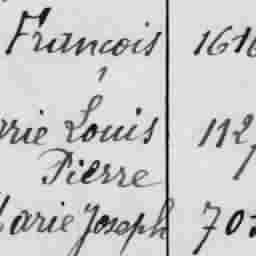 François 1616
rie Louis 112
Pierre
Marie Joseph 702